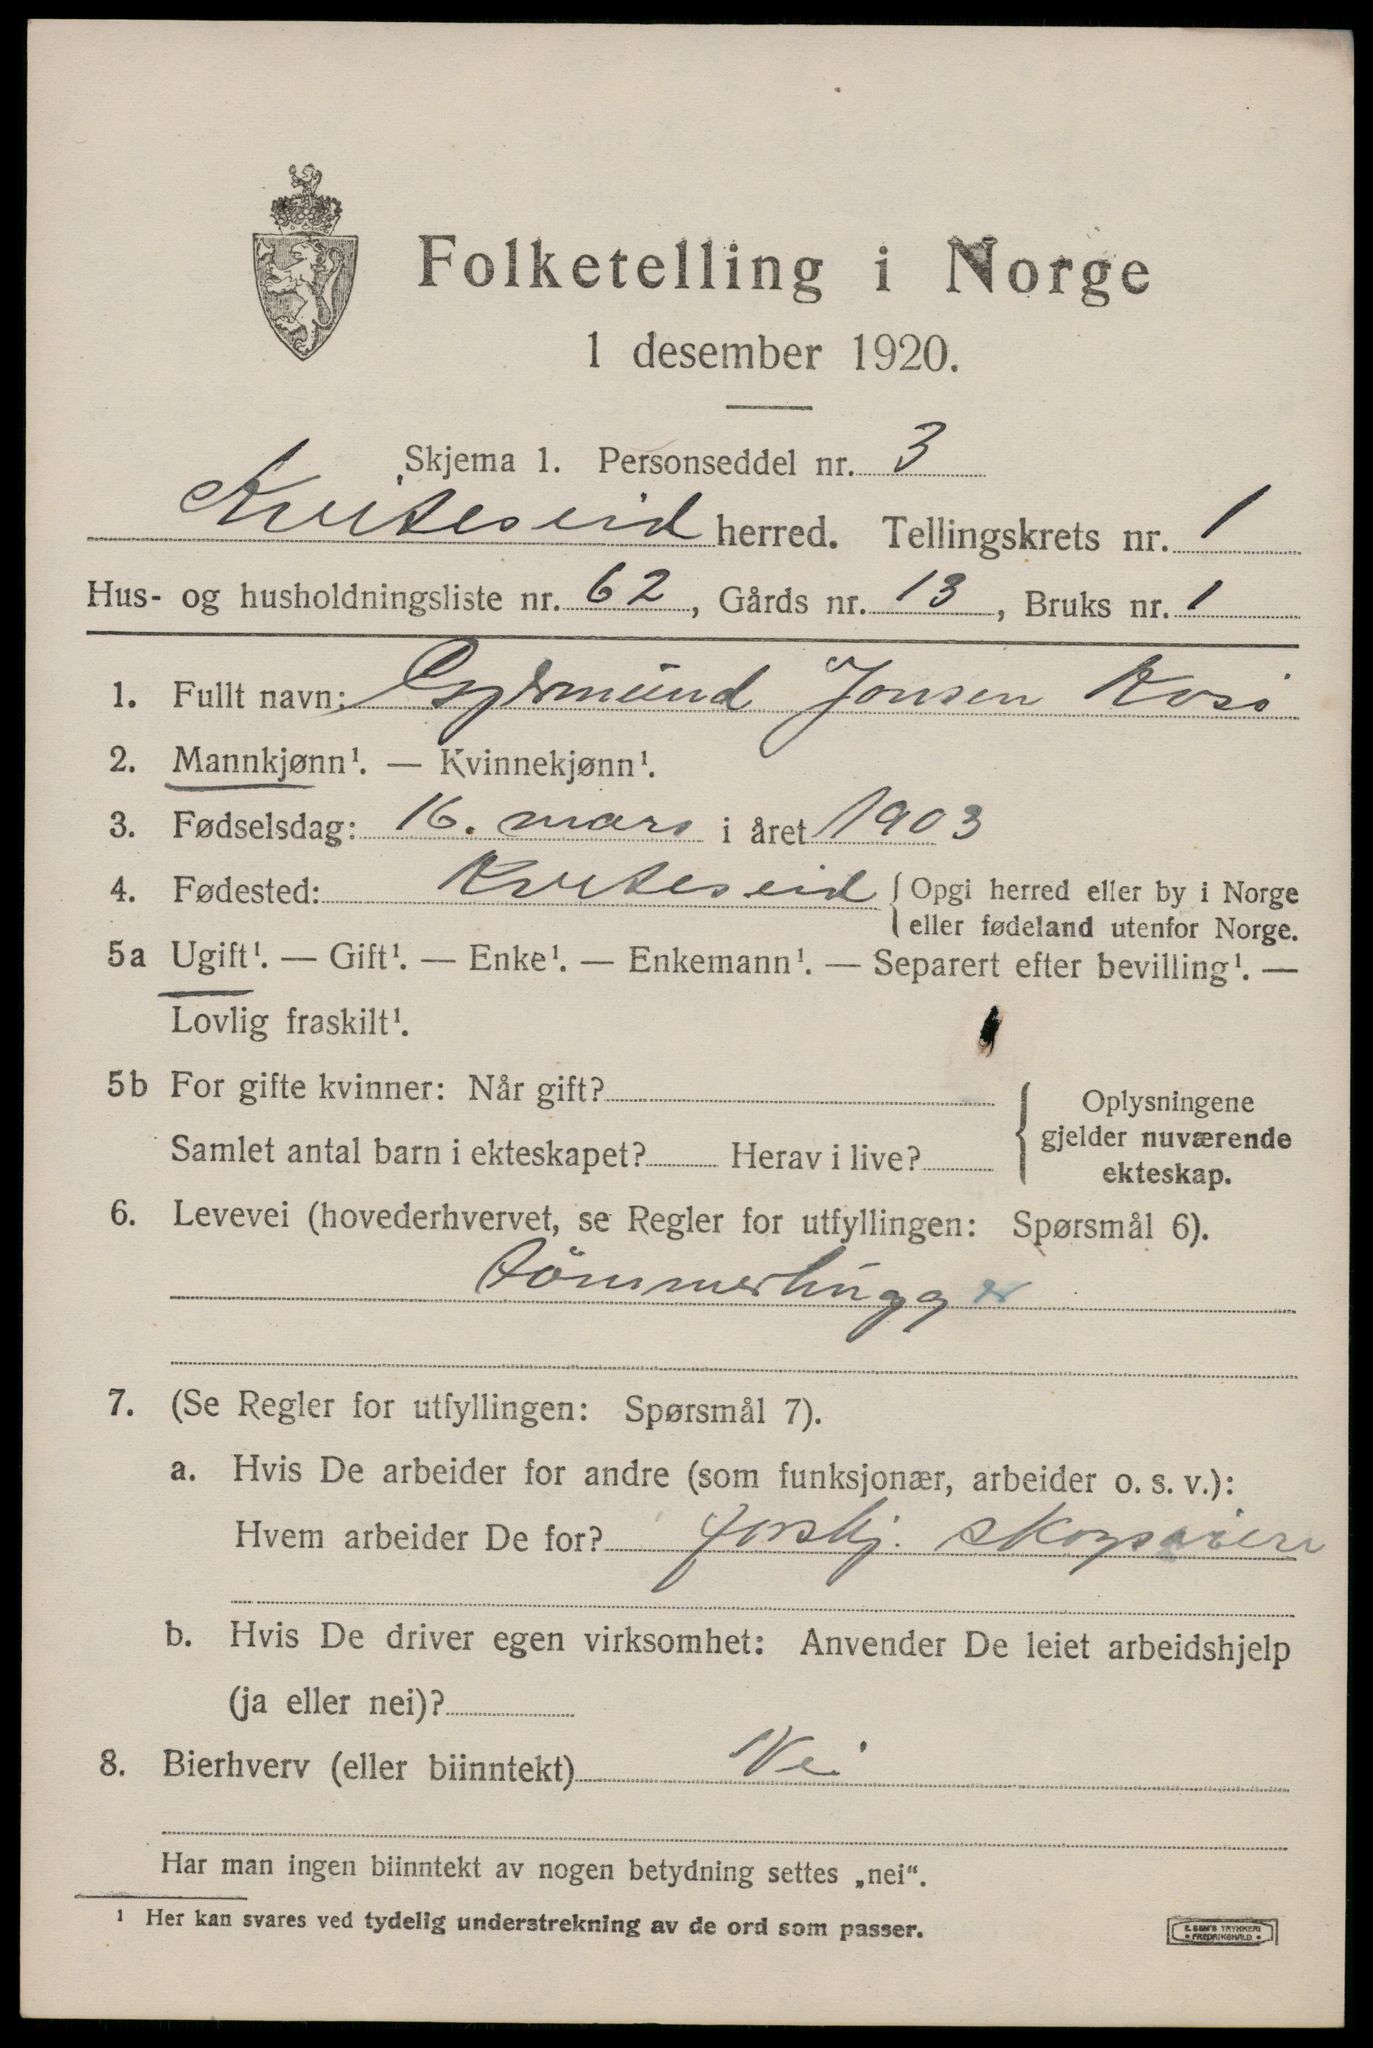 Folketelling i Norge
1 desember 1920.
Skjema 1. Personseddel nr. 3
Kviteseid herred. Tellingskrets nr. 1
Hus- og husholdningsliste nr. 62, Gårds nr. 13, Bruks nr. 1
1. Fullt navn: Jonsen
2. Mannkjønn¹. — Kvinnekjønn¹.
3. Fødselsdag: 16. mars i året 1903
4. Fødested: Kviteseid { Opgi herred eller by i Norge
eller fødeland utenfor Norge.
5a Ugift¹. — Gift¹. — Enke¹. — Enkemann¹. — Separert efter bevilling¹. —
Lovlig fraskilt¹.
5b For gifte kvinner: Når gift?
Samlet antal barn i ekteskapet? Herav i live?
Oplysningene
gjelder nuværende
ekteskap.
6. Levevei (hovederhvervet, se Regler for utfyllingen: Spørsmål 6).
tömmerhugger
7. (Se Regler for utfyllingen: Spørsmål 7).
a. Hvis De arbeider for andre (som funksjonær, arbeider o. s. v.):
Hvem arbeider De for? forskj. skogseiere
b. Hvis De driver egen virksomhet: Anvender De leiet arbeidshjelp
(ja eller nei)?
8. Bierhverv (eller biinntekt) Nei
Har man ingen biinntekt av nogen betydning settes „nei“.
¹ Her kan svares ved tydelig understrekning av de ord som passer.
E. SEM'S TRYKKERI
• FREDRIKSHALD •